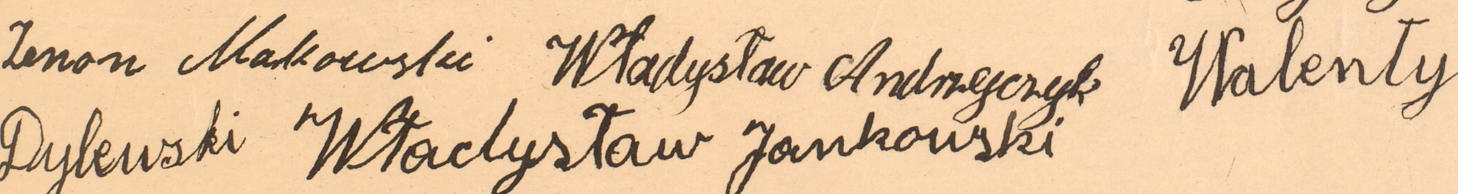 Zenon Makowski Władysław Andrzejczyk Walenty
Dylewski Władysław Jankowski